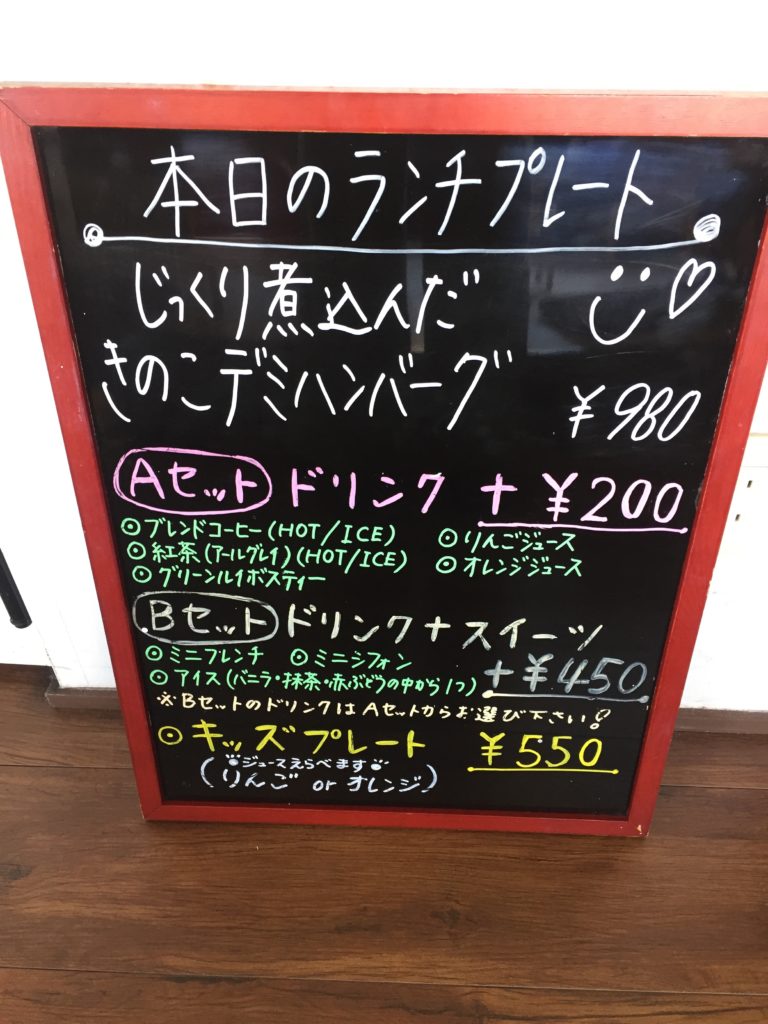 本日のランチプレート
じっくり煮込んだ
きのこデミハンバーグ ¥980
Aセット ドリンク + ¥200
◎ブレンドコーヒー(HOT/ICE) ◎りんごジュース
◎紅茶(アールグレイ)(HOT/ICE) ◎オレンジジュース
◎グリーンルイボスティー
Bセット ドリンク+スイーツ
◎ミニフレンチ ◎ミニシフォン +¥450
◎アイス(バニラ・抹茶・赤ぶどうの中から1つ)
※Bセットのドリンクは Aセットからお選び下さい!
◎キッズプレート ¥550
ジュースえらべます
(りんご or オレンジ)